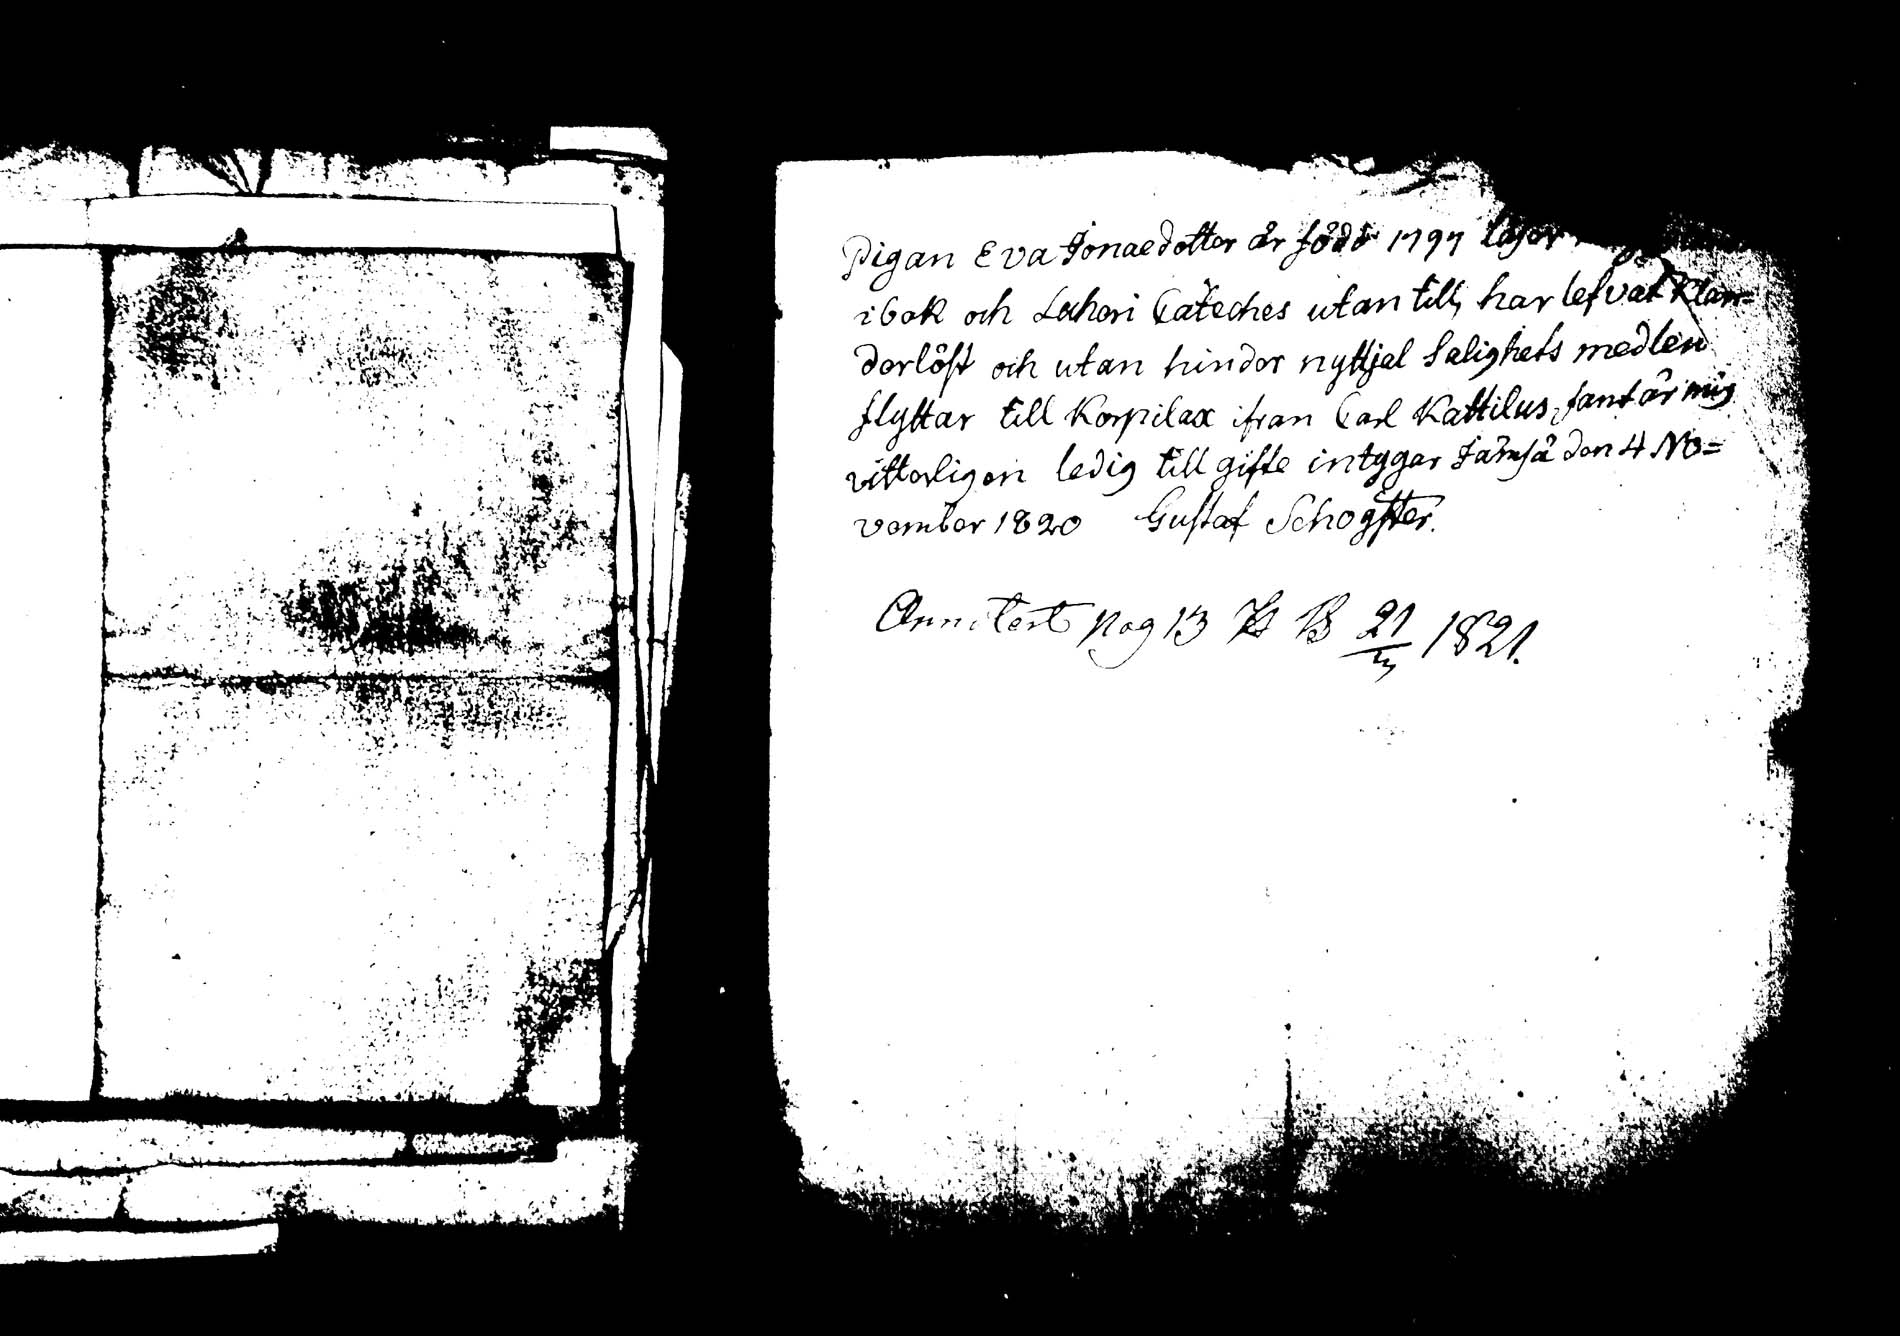 Pigan Eva Jonaedotter är född 1797 läser
i bok och Lutheri Cateches utan till, har lefvat klan=
derlöst och utan hinder nyttjal Salighets medlen
flyttar till Korpilax ifran Carl Kattilus, samt är mig
vitterligen ledig till gifte intygar Jämsä den 4 No=
vember 1820 Gustaf Schogster.
Annoterat pag 13 21 1821.